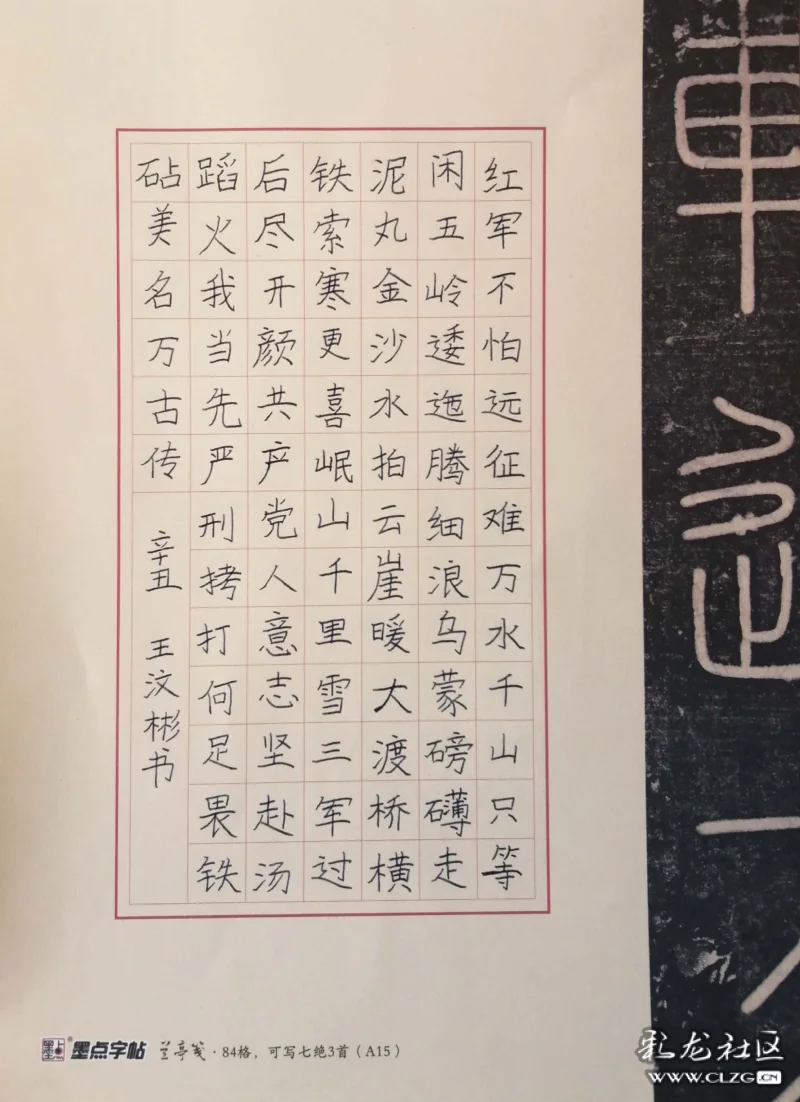 红军不怕远征难万水千山只等
闲五岭逶迤腾细浪乌蒙磅礴走
泥丸金沙水拍云崖暖大渡桥横
铁索寒更喜岷山千里雪三军过
后尽开颜共产党人意志坚赴汤
蹈火我当先严刑拷打何足畏铁
砧美名万古传
辛丑 王汶彬书
墨点字帖 兰亭笺·84格，可写七绝3首（A15）
彩龙社区
WWW.CLZG.CN